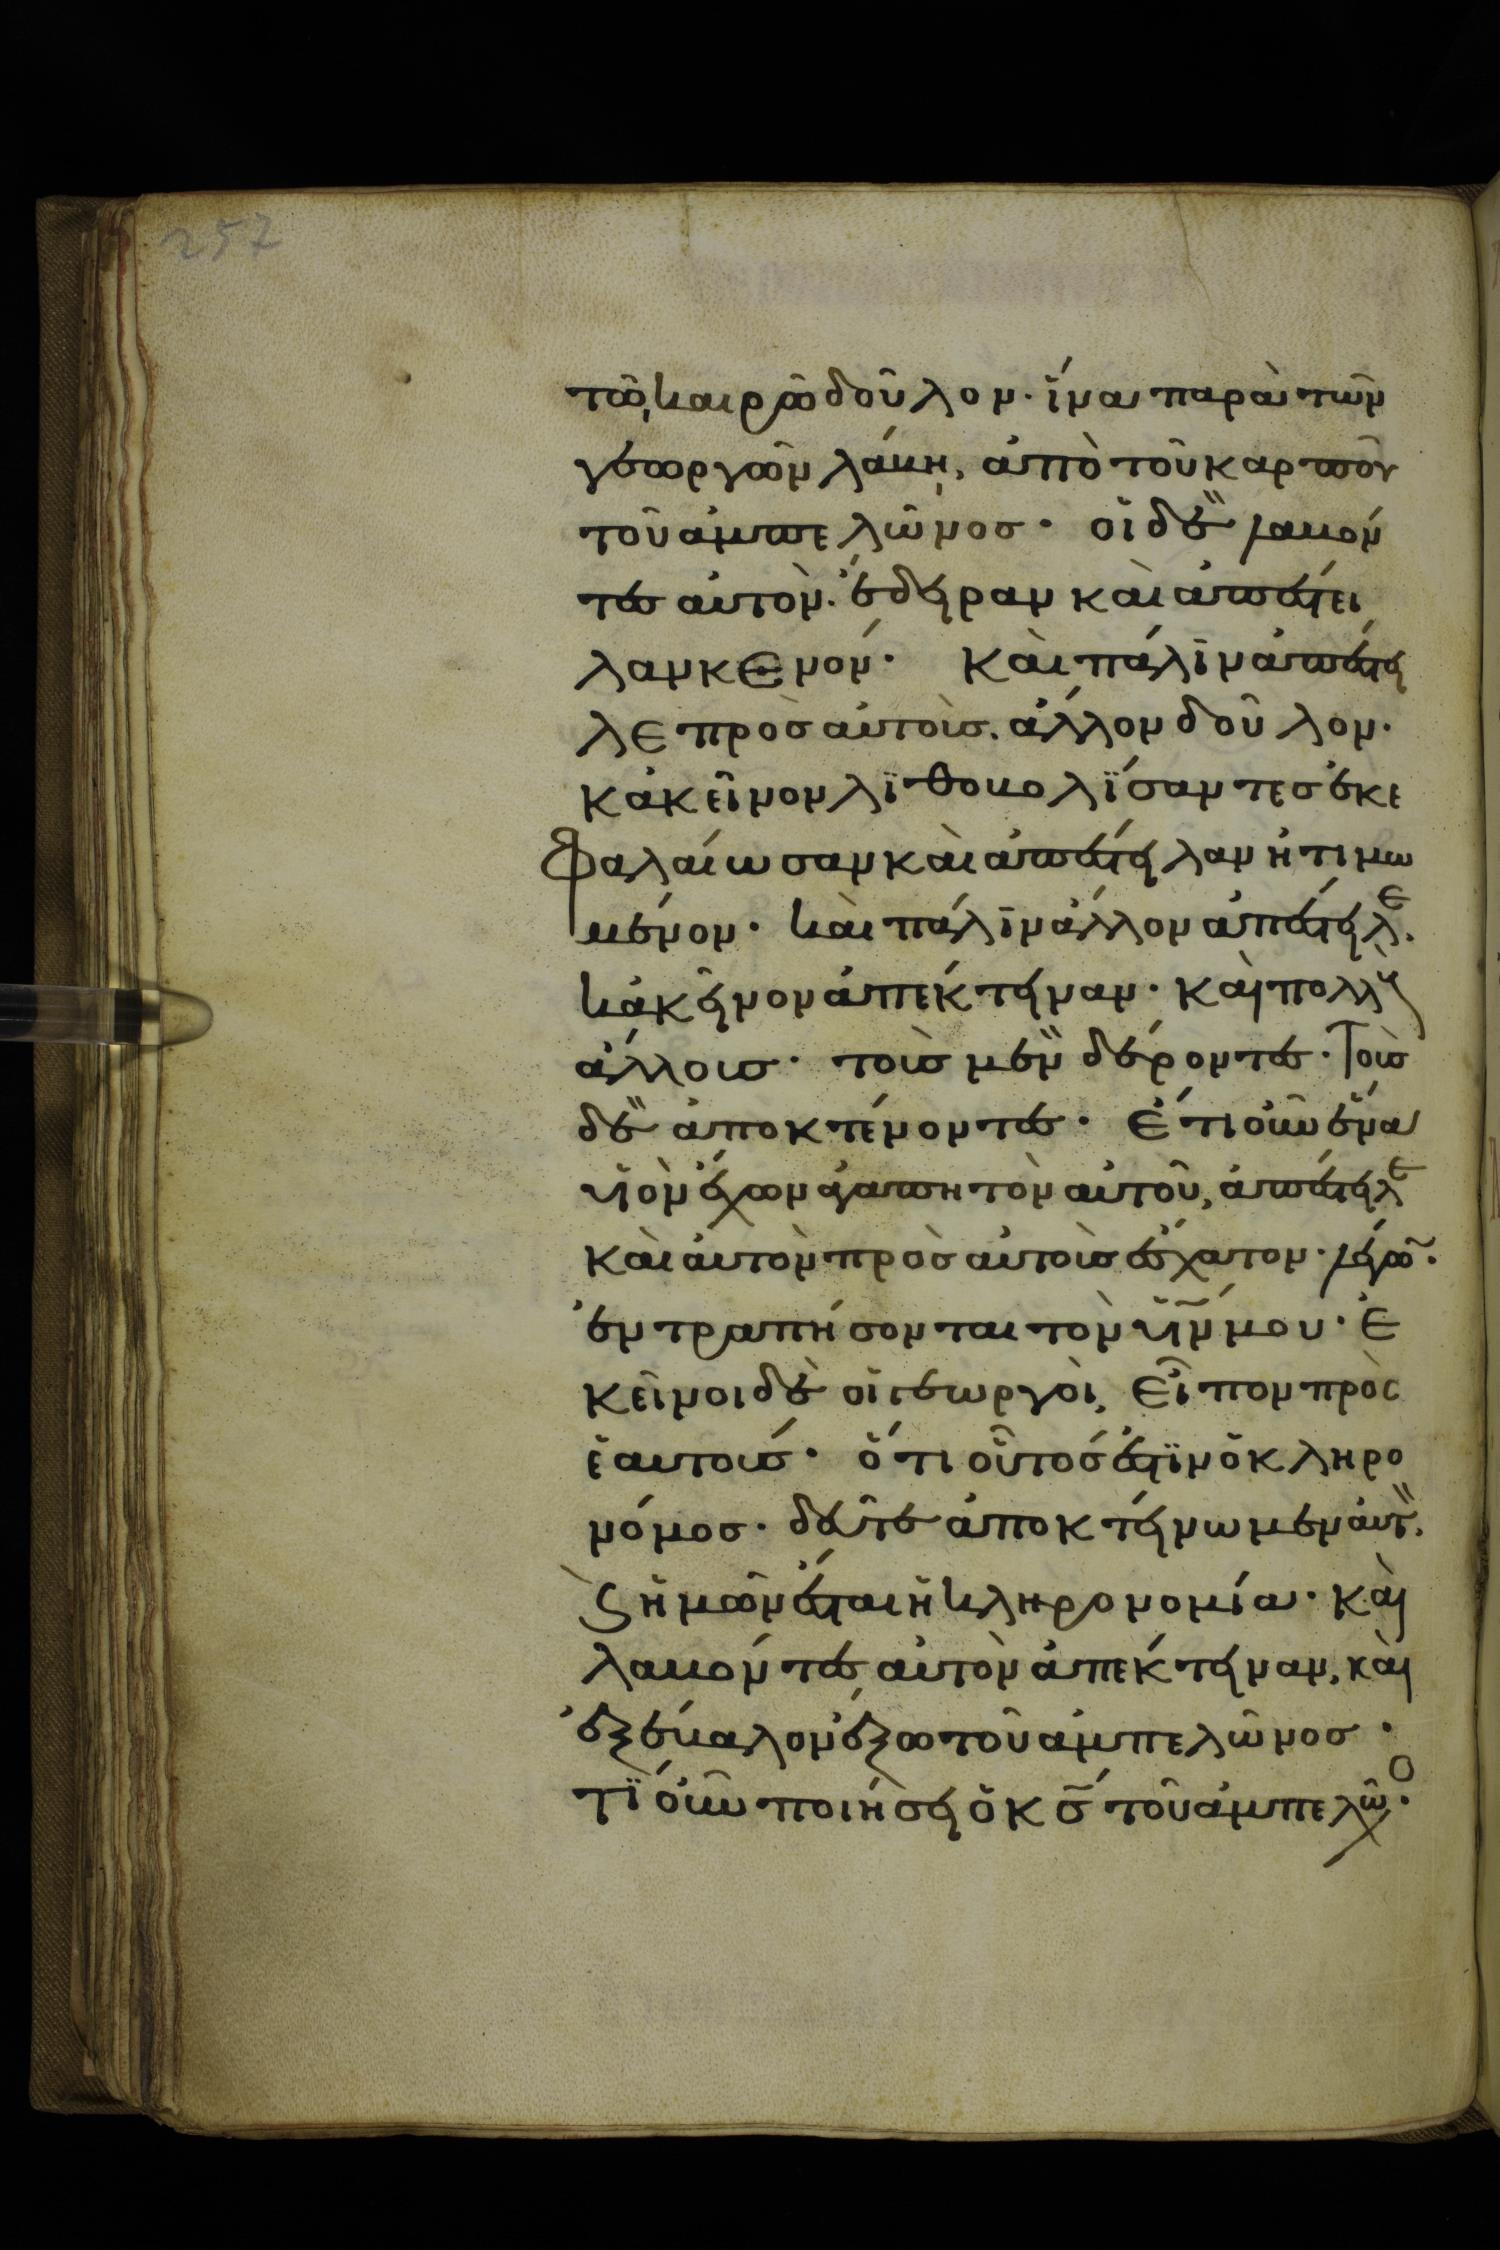 257
τῶ καιρῶ δοῦλον· ἵνα παρὰ τῶν
γεωργῶν λάβη, ἀπὸ τοῦ καρποῦ
τοῦ ἀμπελῶνοσ· οἱ δὲ λαβόν
τεσ αὐτὸν. ἔδειραν καὶ ἀπέστει
λαν κενόν· καὶ πάλιν ἀπέστει
λε πρὸσ αὐτοὺσ. ἄλλον δοῦλον·
κἀκεῖνον λϊθοβολϊσαντεσ ἐκε
φαλαίωσαν καὶ ἀπέστειλαν ἠτιμω
μένον· καὶ πάλιν ἄλλον ἀπέστειλε.
κἀκεῖνον ἀπέκτειναν· καὶ πολλοὺς
ἄλλουσ· τοὺσ μὲν δέροντεσ· τοὺσ
δὲ ἀποκτένοντεσ· ἔτι οὖν ἕνα
υἱὸν ἔχων ἀγαπητὸν αὐτοῦ, ἀπέστειλε
καὶ αὐτὸν πρὸσ αὐτοὺσ ἔσχατον· λέγων·
ἐντραπήσονται τὸν υἱν μου· ἐ
κεῖνοι δὲ οἱ γεωργοὶ, εἶπον πρὸς
ἑαυτούσ· ὅτι οὗτόσ ἐστϊν ὁ κληρο
νόμοσ· δεῦτε ἀποκτείνωμεν αὐτ.
ϛ ἡμῶν ἔσται ἡ κληρονομία· καὶ
λαβόντεσ αὐτὸν ἀπέκτειναν, καὶ
ἐξέβαλον ἔξω τοῦ ἀμπελῶνοσ·
τϊ οὖν ποιήσει ὁ κσ τοῦ ἀμπελῶο·